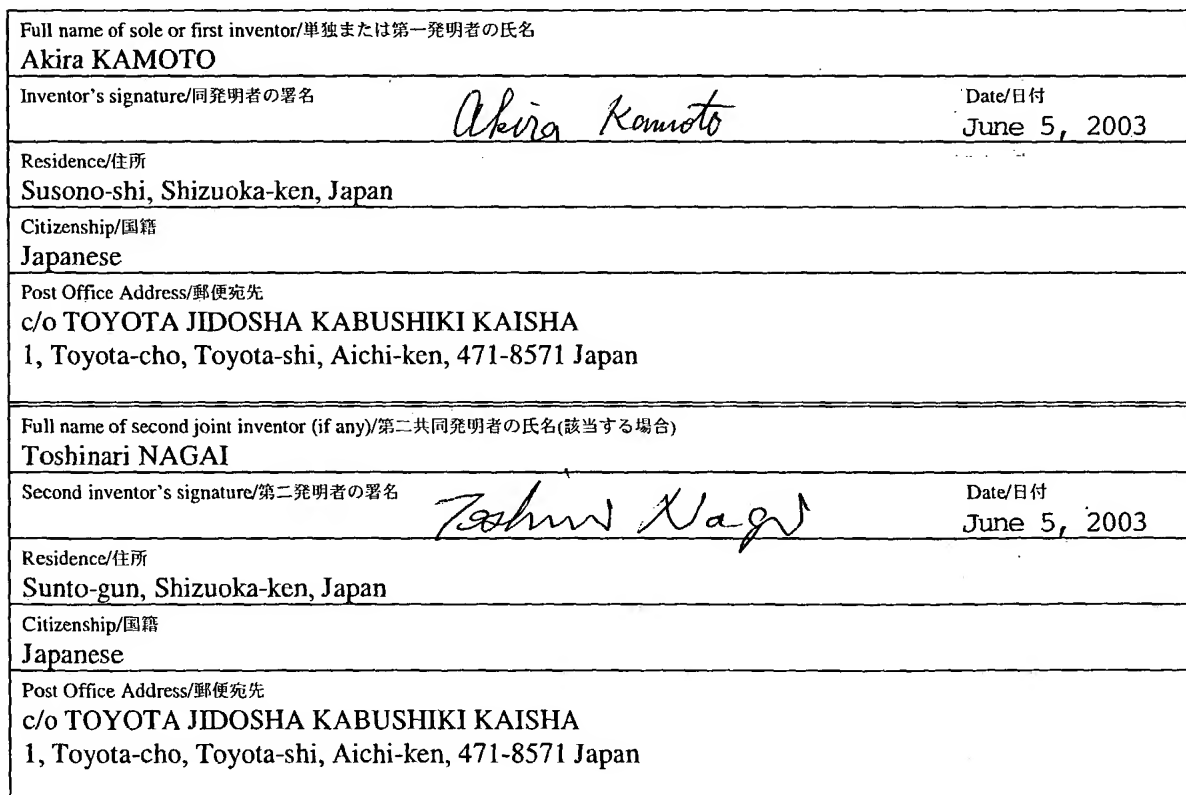 Full name of sole or first inventor/単独または第一発明者の氏名
Akira KAMOTO
Inventor's signature/同発明者の署名
Akira Kamoto
Date/日付
June 5, 2003
Residence/住所
Susono-shi, Shizuoka-ken, Japan
Citizenship/国籍
Japanese
Post Office Address/郵便宛先
c/o TOYOTA JIDOSHA KABUSHIKI KAISHA
1, Toyota-cho, Toyota-shi, Aichi-ken, 471-8571 Japan
Full name of second joint inventor (if any)/第二共同発明者の氏名(該当する場合)
Toshinari NAGAI
Second inventor's signature/第二発明者の署名
Date/日付
June 5, 2003
Residence/住所
Sunto-gun, Shizuoka-ken, Japan
Citizenship/国籍
Japanese
Post Office Address/郵便宛先
c/o TOYOTA JIDOSHA KABUSHIKI KAISHA
1, Toyota-cho, Toyota-shi, Aichi-ken, 471-8571 Japan